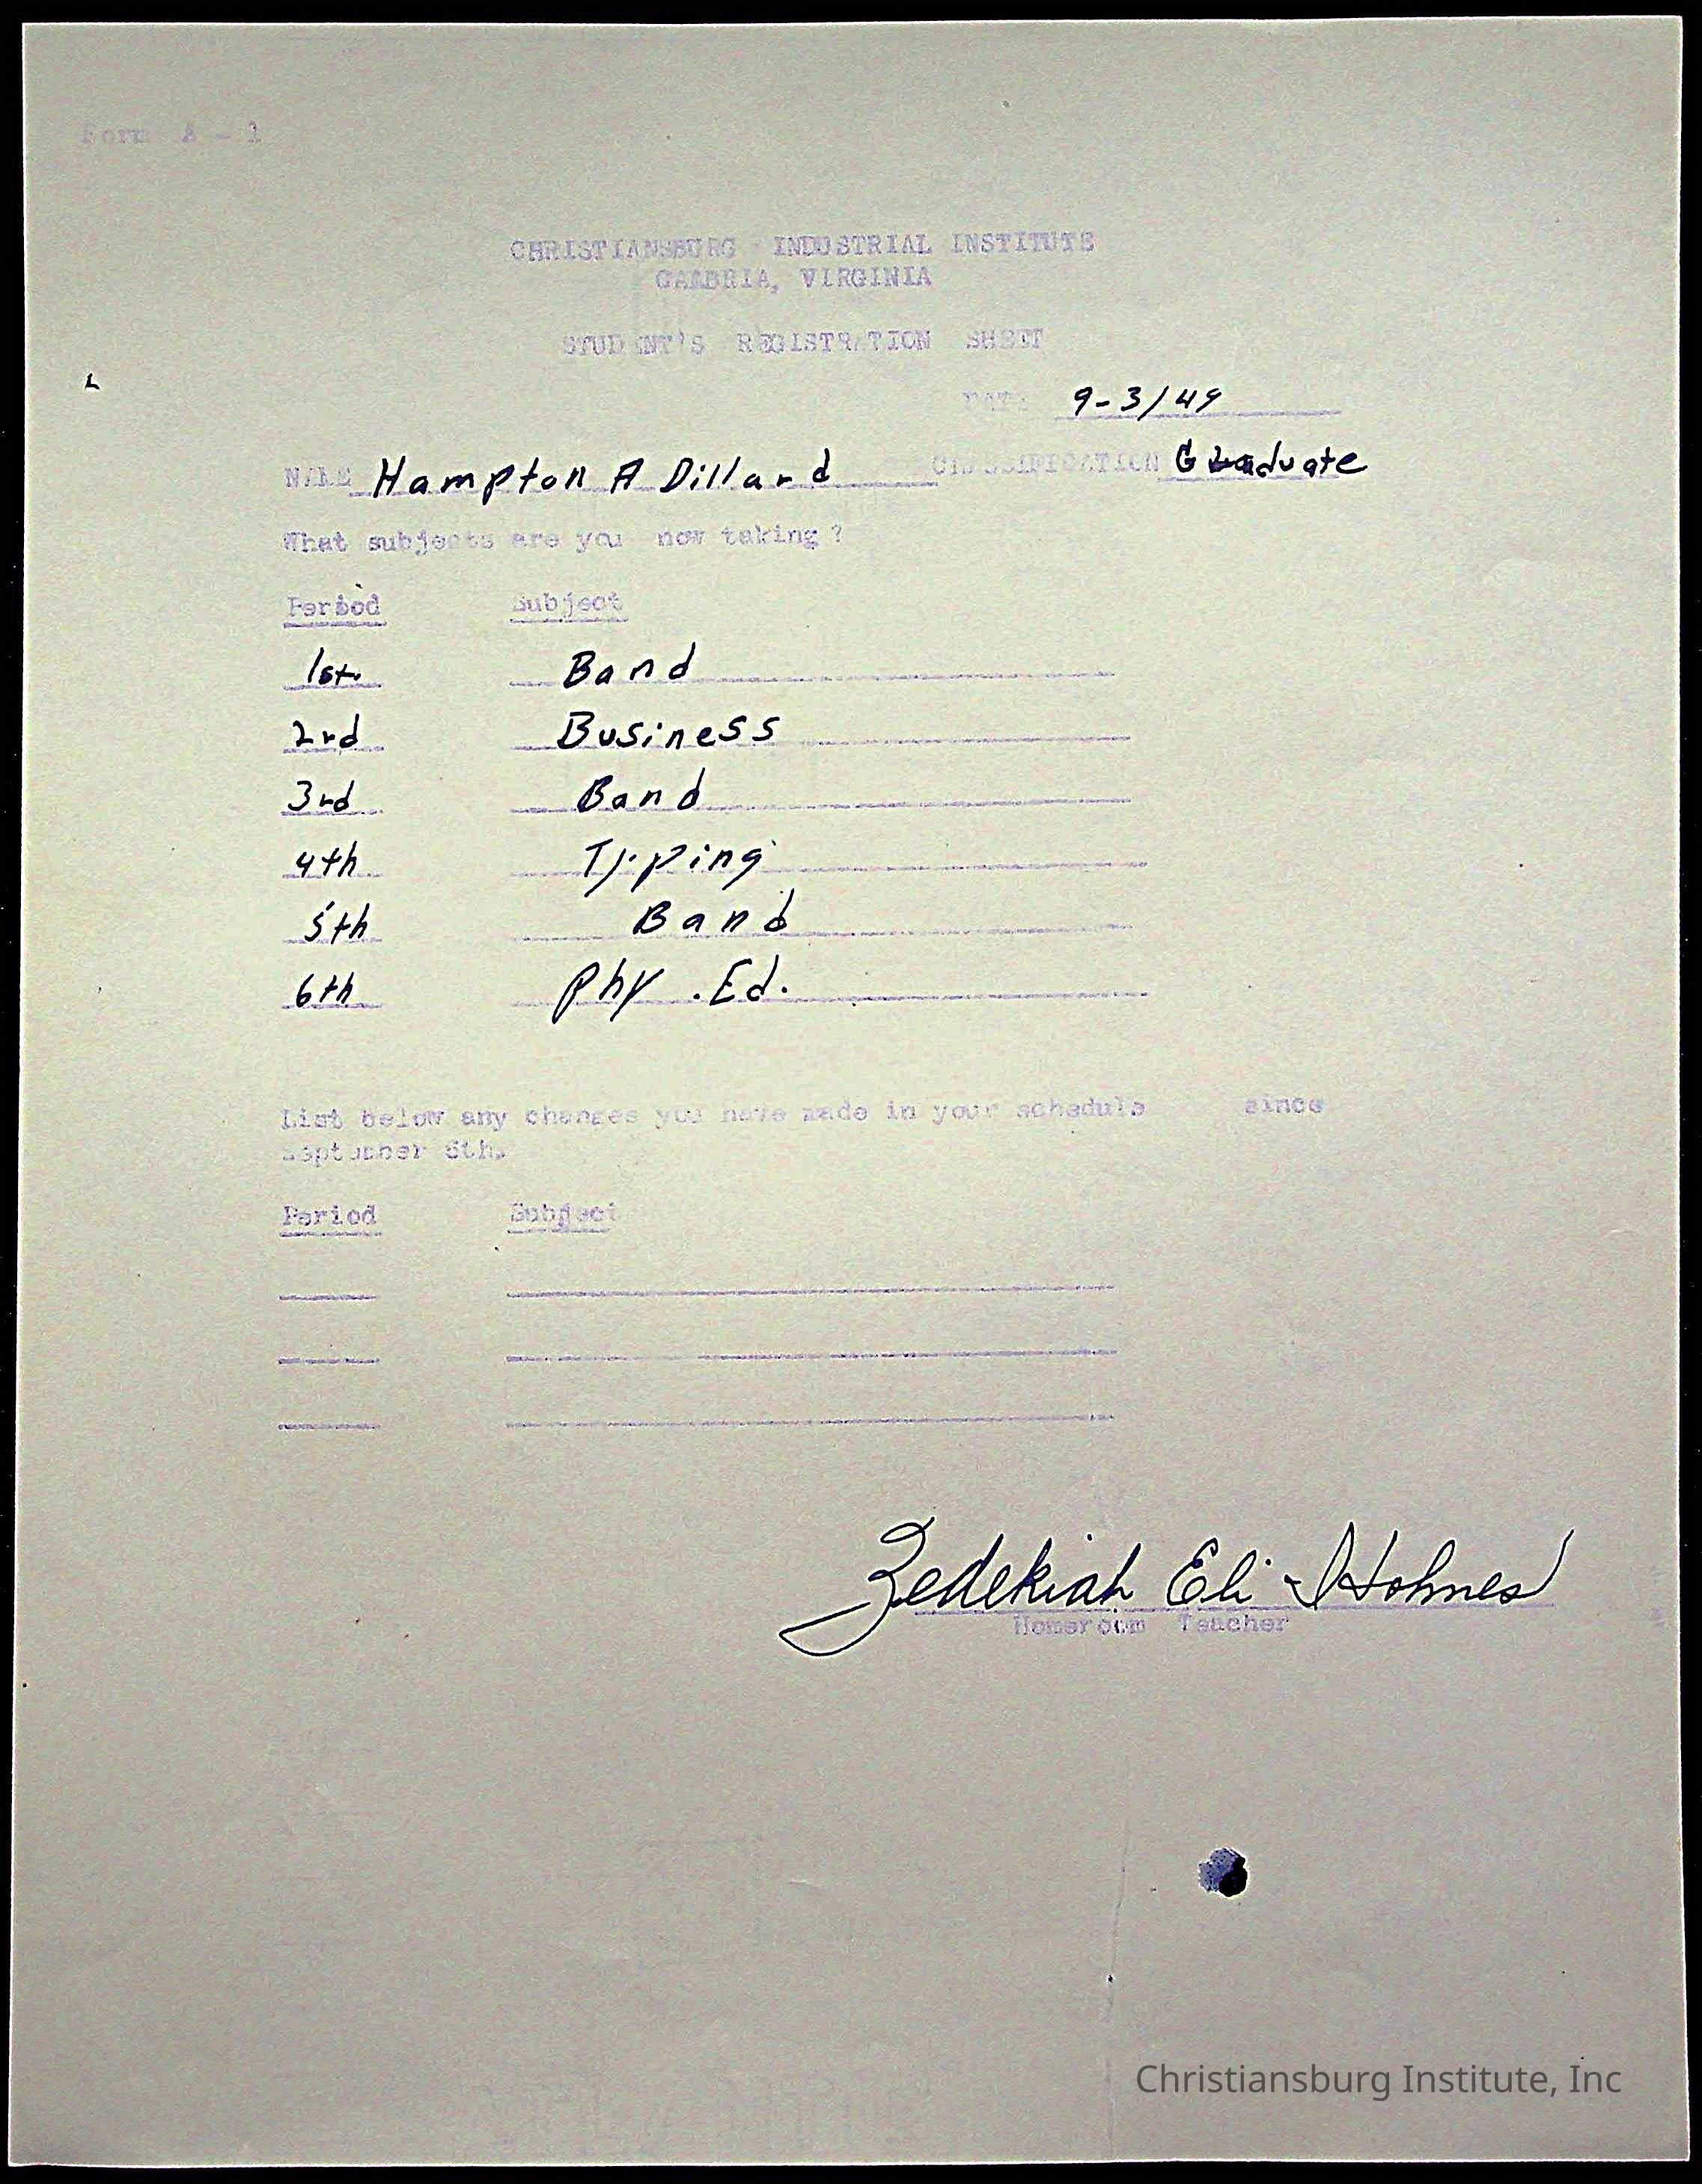 Form A - 1
CHRISTIANSBURG INDUSTRIAL INSTITUTE
CAMBRIA, VIRGINIA
STUDENT'S REGISTRATION SHEET
DATE 9-3/49
NAME Hampton A Dillard CLASSIFICATION Graduate
What subjects are you now taking ?
Period Subject
1st. Band
2rd Business
3rd Band
4th Typing
5th Band
6th Phy .Ed.
List below any changes you have made in your schedule since
September 6th.
Period Subject
Zedekiah Eli Holmes
Homeroom Teacher
Christiansburg Institute, Inc